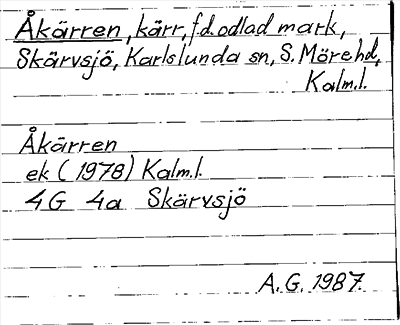 Åkärren, kärr, f.d. odlad mark,
Skärvsjö, Karlslunda sn, S. Möre hd,
Kalm.l.
Åkärren
ek (1978) Kalm.l.
4G 4a Skärvsjö
A.G. 1987.